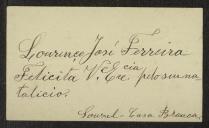 Lourenço José Ferreira
Felicita V. Ex.cia pelo seu na
talicio.
Souzel - Casa Branca.